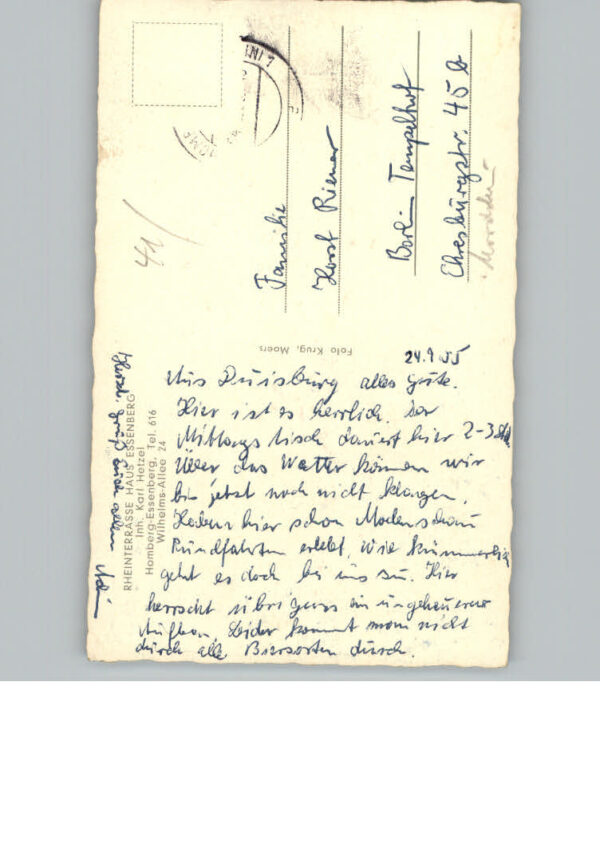 24.9.55
Aus Duisburg alles Gute.
Hier ist es herrlich. Der
Mittagstisch dauert hier 2-3 Std.
Über das Wetter können wir
bis jetzt noch nicht klagen.
Haben hier schon Modenschau
Rundfahrten erlebt. Wie kümmerlich
geht es doch bei uns zu. Hier
herrscht übrigens ein ungeheurer
Aufbau. Leider kommt man nicht
durch alle Biersorten durch.
Herzl. Grüße euch allen
RHEINTERRASSE HAUS ESSENBERG
Inh. Karl Hetzel
Homberg-Essenberg, Tel. 616
Wilhelms-Allee 24
Foto Krug, Moers
Familie
Horst Riemer
Berlin Tempelhof
Ehresburgstr. 45 b
41/